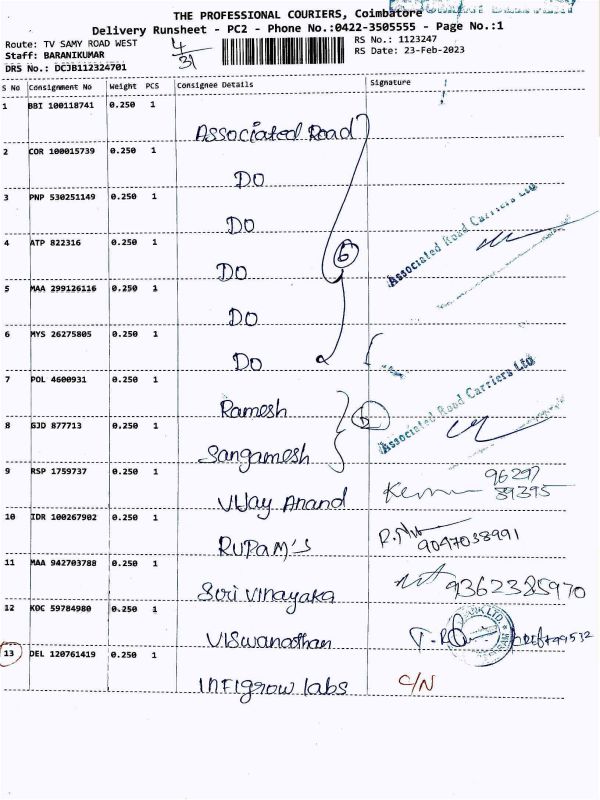 THE PROFESSIONAL COURIERS, Coimbatore
Delivery Runsheet - PC2 - Phone No.:0422-3505555 - Page No.:1
Route: TV SAMY ROAD WEST
RS No.: 1123247
Staff: BARANIKUMAR
RS Date: 23-Feb-2023
DRS No.: DCJB112324701
4/31
S No Consignment No Weight PCS Consignee Details Signature
1 BBI 100118741 0.250 1
Associated Road
2 COR 100015739 0.250 1
DO
3 PNP 530251149 0.250 1
DO
Associated Road Carriers Ltd
4 ATP 822316 0.250 1
DO
6
5 MAA 299126116 0.250 1
DO
6 MYS 26275805 0.250 1
DO
7 POL 4600931 0.250 1
Ramesh
Associated Road Carriers Ltd
8 GJD 877713 0.250 1
Sangamesh
9 RSP 1759737 0.250 1
Vijay Anand
96297
39395
10 IDR 100267902 0.250 1
RUPAM'S
9047038991
11 MAA 942703788 0.250 1
Sri Vinayaka
9362385970
12 KOC 59784980 0.250 1
Viswanathan
13 DEL 120761419 0.250 1
Infigrow labs C/N